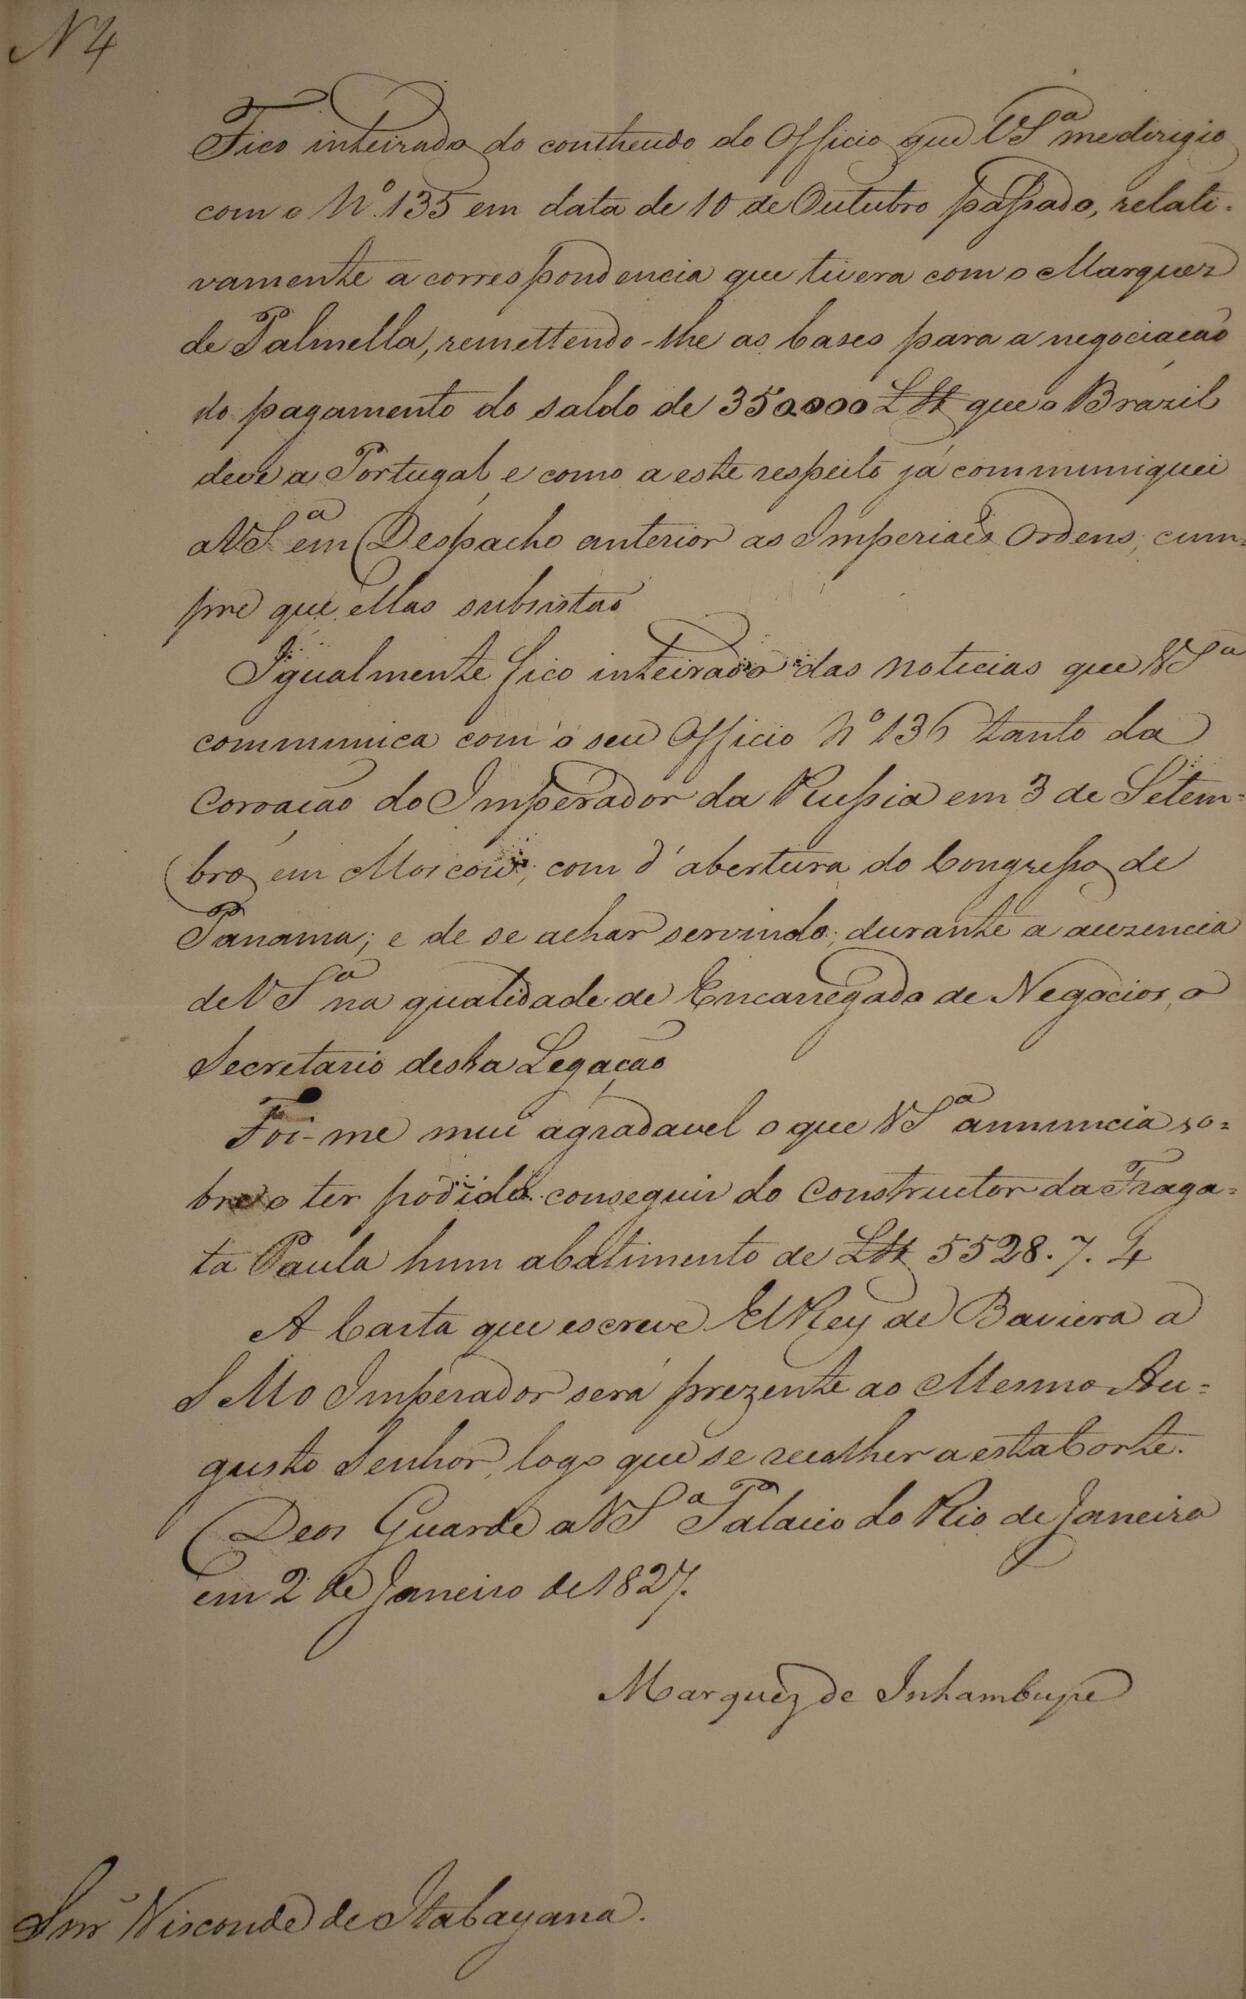 N 4
Fico inteirado do contheudo do Officio que VSª me dirigio
com o Nº 135 em data de 10 de Outubro passado, relati-
vamente a correspondencia que tivera com o Marquez
de Palmella, remettendo-lhe as bases para a negociação
do pagamento do saldo de 350.000 L St que o Brazil
deve a Portugal, e como a este respeito já communiquei
a VSª em Despacho anterior as Imperiaes Ordens, cum=
pre que ellas subsistão
Igualmente fico inteirado das noticias que VSª
communica com o seu Officio Nº 136 tanto da
Coroação do Imperador da Russia em 3 de Setem=
bro em Moscow, com d'abertura do Congresso de
Panama; e de se achar servindo, durante a auzencia
de VSª na qualidade de Encarregado de Negocios, o
Secretario desta Legação
Foi-me mui agradavel o que VSª annuncia so=
bre o ter podido conseguir do Constructor da Fraga=
ta Paula hum abatimento de L St 5528.7.4
A Carta que escreve ElRey de Baviera a
S M O Imperador será prezente ao Mesmo Au=
gusto Senhor, logo que se recolher a esta Corte.
Deos Guarde a VSª Palacio do Rio de Janeiro
em 2 de Janeiro de 1827.
Marquez de Inhambupe
Snr Visconde de Itabayana.